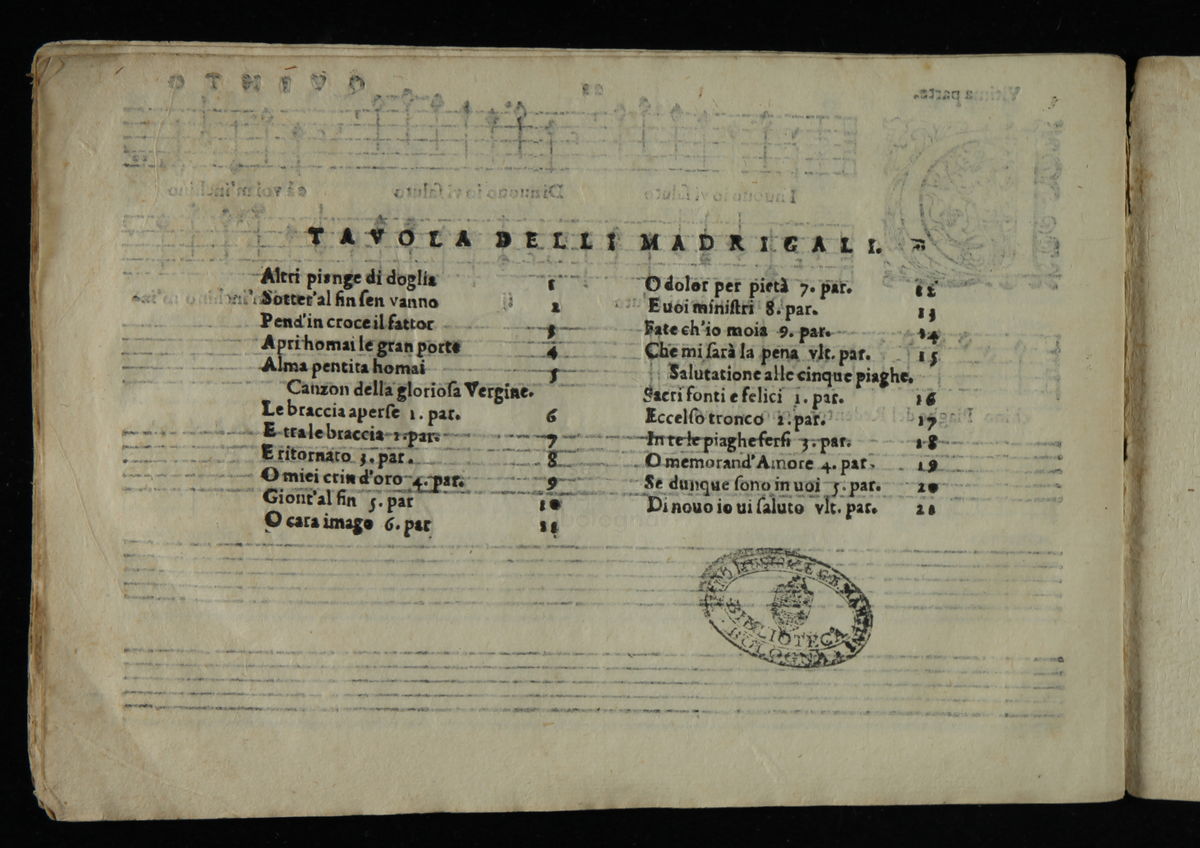 TAVOLA DELLI MADRIGALI.
Altri piange di doglia 1
Sotter'al fin sen vanno 2
Pend'in croce il fattor 3
Apri homai le gran porte 4
Alma pentita homai 5
Canzon della gloriosa Vergine.
Le braccia aperse 1. par. 6
E tra le braccia 2. par. 7
E ritornato 3. par. 8
O miei crin d'oro 4. par. 9
Giont'al fin 5. par 10
O cara imago 6. par 11
O dolor per pietà 7. par. 12
E uoi ministri 8. par. 13
Fate ch'io moia 9. par. 14
Che mi sarà la pena vlt. par. 15
Salutatione alle cinque piaghe.
Sacri fonti e felici 1. par. 16
Eccelso tronco 2. par. 17
In te le piaghe fersi 3. par. 18
O memorand'Amore 4. par. 19
Se dunque sono in uoi 5. par. 20
Di nouo io ui saluto vlt. par. 21
BIBLIOTECA
BOLOGNA